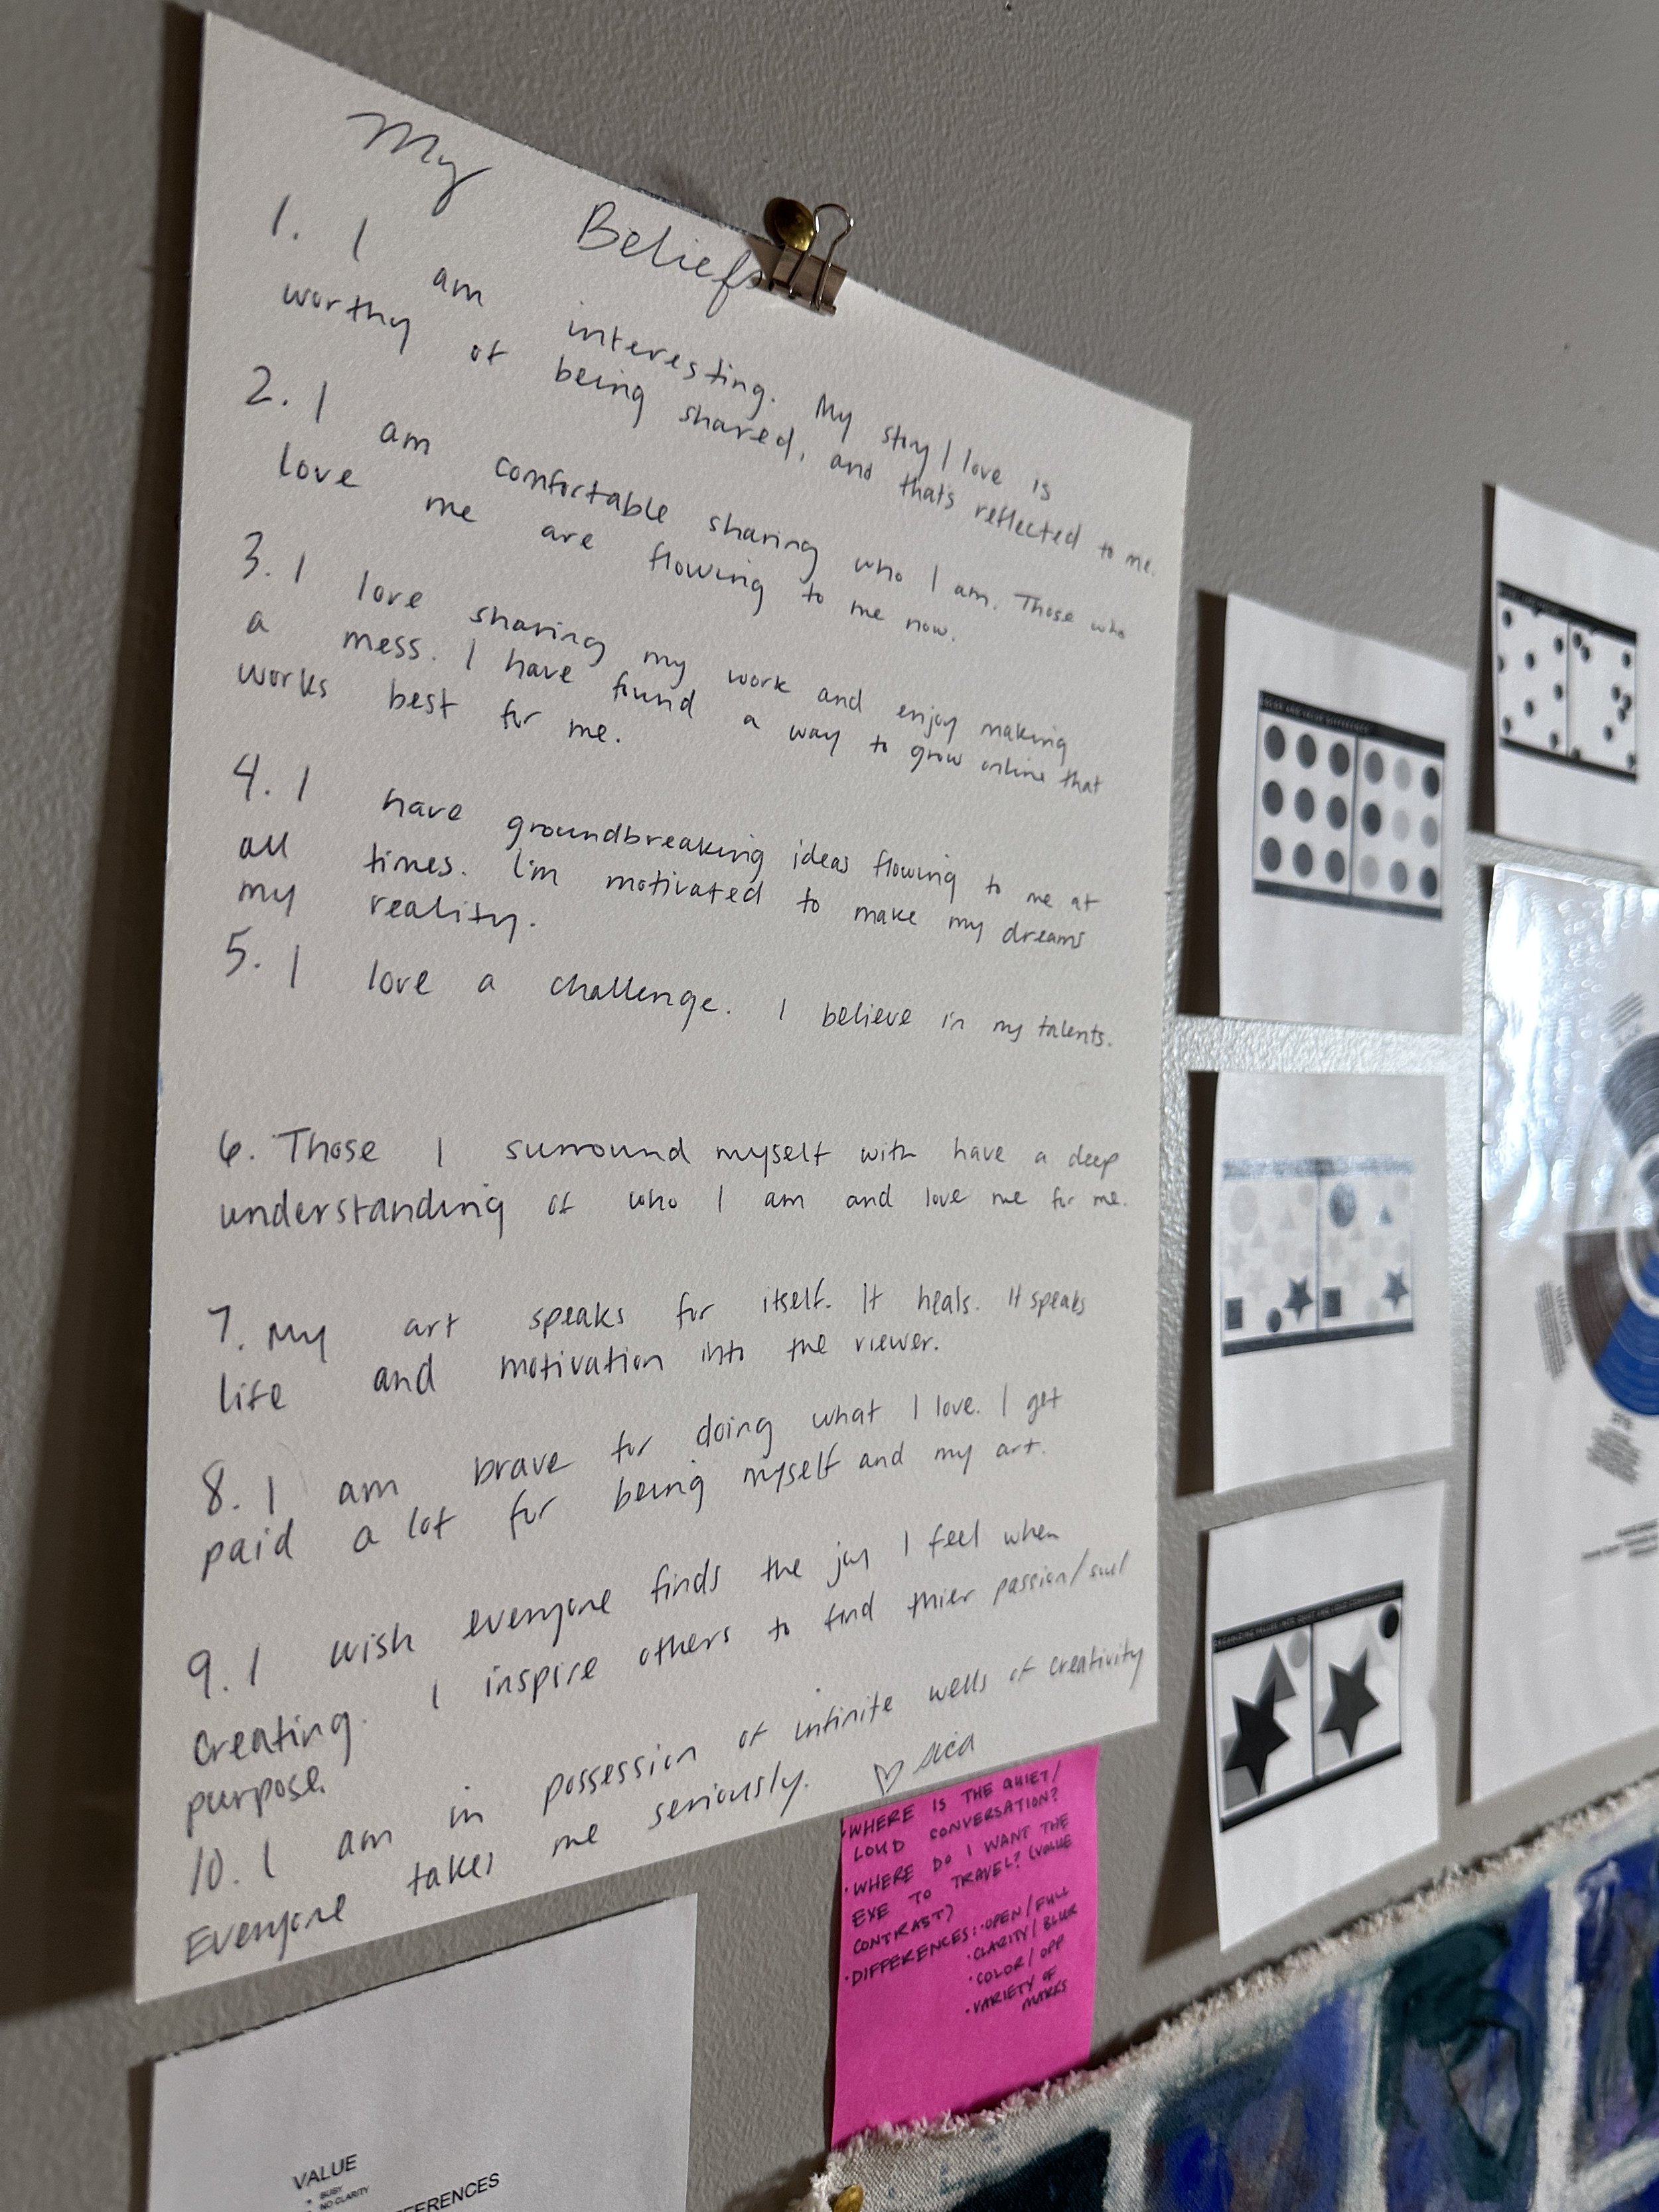 My Beliefs
1. I am interesting. My story I love is
worthy of being shared, and thats reflected to me.
2. I am comfortable sharing who I am. Those who
love me are flowing to me now.
3. I love sharing my work and enjoy making
a mess. I have found a way to grow online that
works best for me.
4. I have groundbreaking ideas flowing to me at
all times. I'm motivated to make my dreams
my reality.
5. I love a challenge. I believe in my talents.
6. Those I surround myself with have a deep
understanding of who I am and love me for me.
7. My art speaks for itself. It heals. It speaks
life and motivation into the viewer.
8. I am brave for doing what I love. I get
paid a lot for being myself and my art.
9. I wish everyone finds the joy I feel when
creating. I inspire others to find thier passion/soul
purpose.
10. I am in possession of infinite wells of creativity
Everyone takes me seriously.
♡ sica
• WHERE IS THE QUIET/
LOUD CONVERSATION?
• WHERE DO I WANT THE
EYE TO TRAVEL? (VALUE
CONTRAST)
• DIFFERENCES: • OPEN/FULL
• CLARITY/BLUR
• COLOR/OPP
• VARIETY OF
MARKS
VALUE
• BUSY
• NO CLARITY
FERENCES